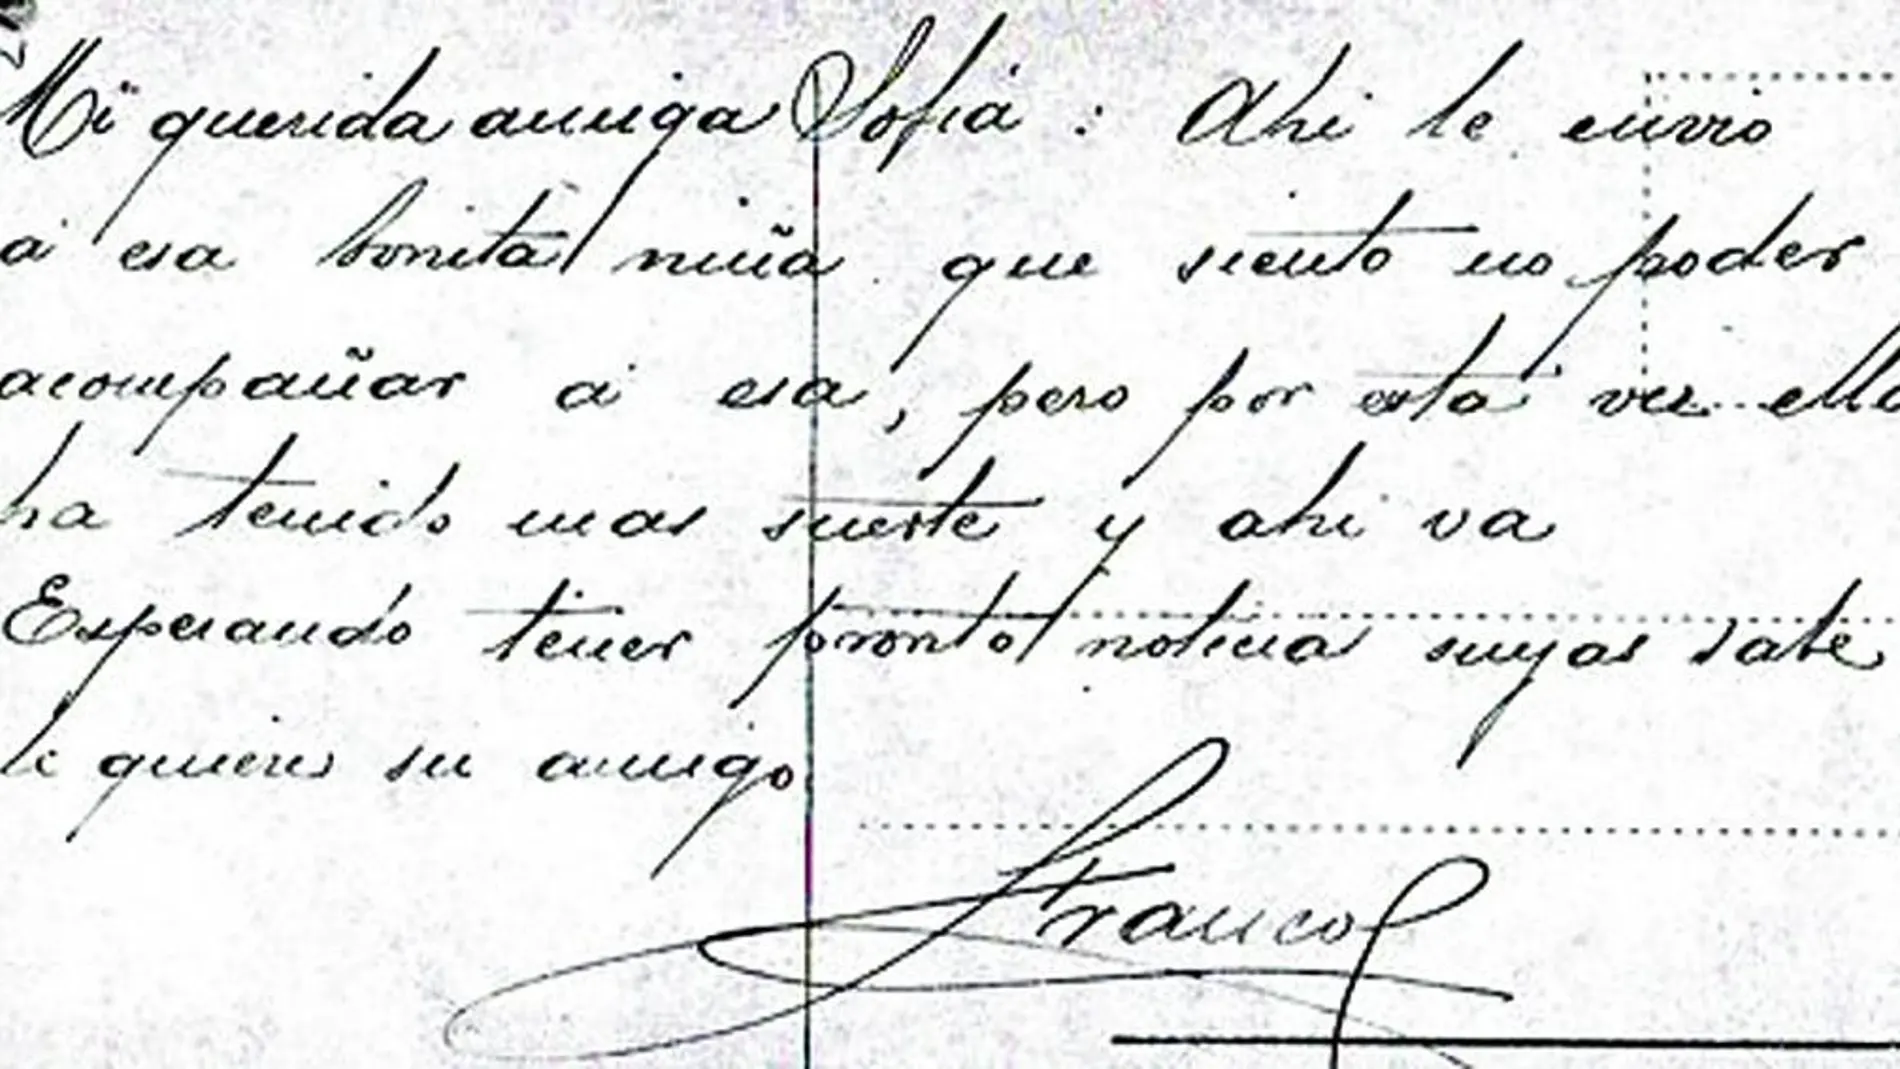 Mi querida amiga Sofiá : Ahi le envio
á esa bonita niña que siento no poder
acompañar á esa, pero por esta vez ella
ha tenido mas suerte y ahi va
Esperando tener pronto noticias suyas sabe
le quiere su amigo
Franco